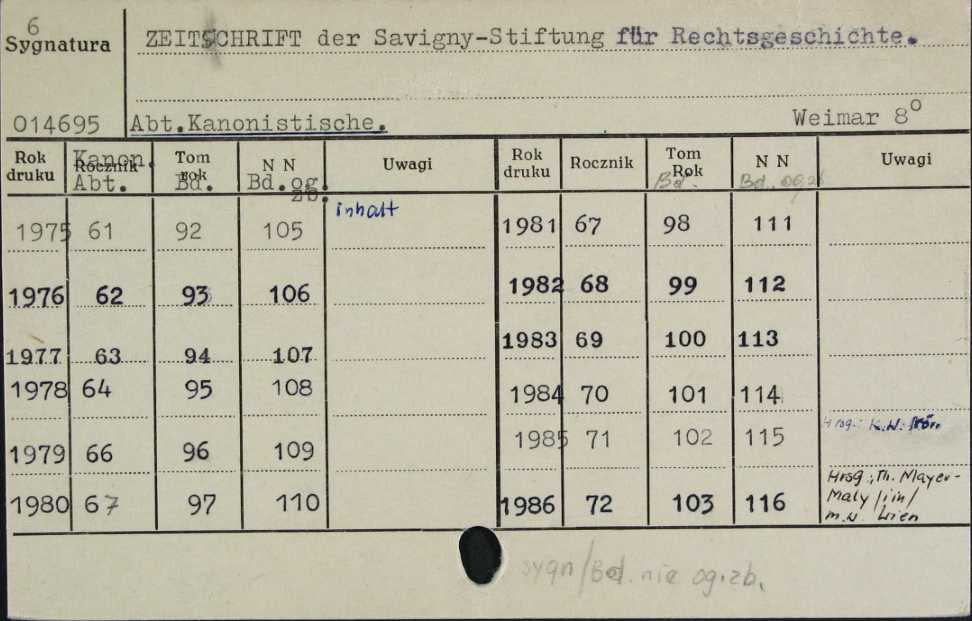 6
Sygnatura
ZEITSCHRIFT der Savigny-Stiftung für Rechtsgeschichte.
014695
Abt.Kanonistische.
Weimar 8°
Rok druku Rocznik Kanon. Abt. Tom rok Bd. N N Bd.og. zb. Uwagi
1975 61 92 105 inhalt
1976 62 93 106
1977 63 94 107
1978 64 95 108
1979 66 96 109
1980 67 97 110
Rok druku Rocznik Tom Rok Bd. N N Bd. og.zb Uwagi
1981 67 98 111
1982 68 99 112
1983 69 100 113
1984 70 101 114
1985 71 102 115 Hrsg.: K.W.
1986 72 103 116 Hrsg.: Th. Mayer-
Maly /in/
Wien
sygn/Bd. nie og.zb.